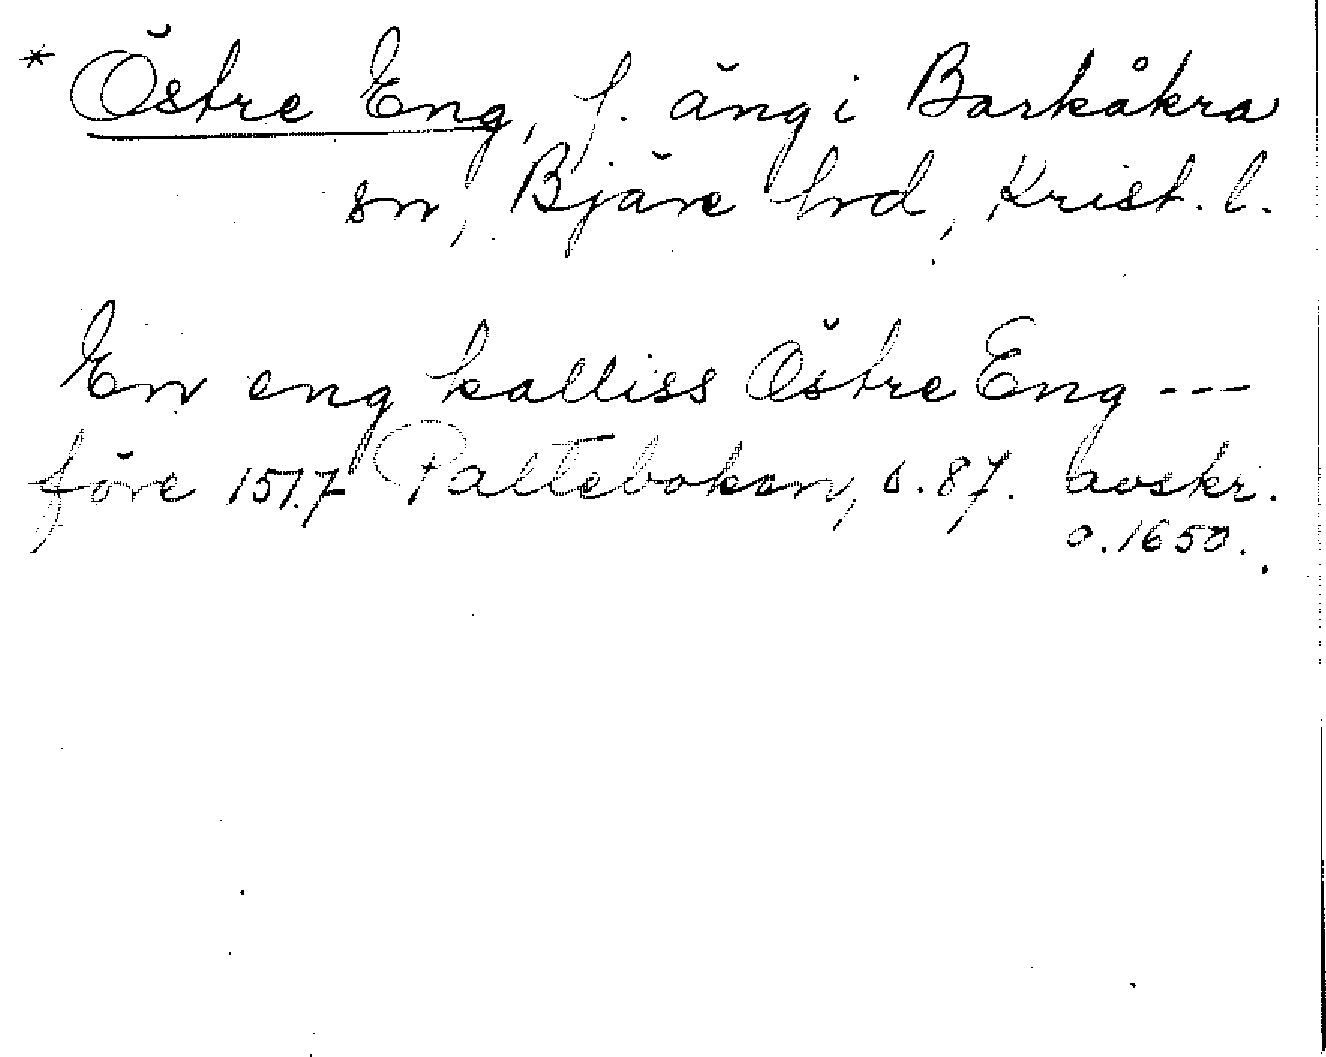 * Östre Eng, f. äng i Barkåkra
sn, Bjäre hrd, Krist. l.
En eng kalliss Östre Eng ---
före 1517 Paltebokan, s. 87. avskr.
o. 1650.